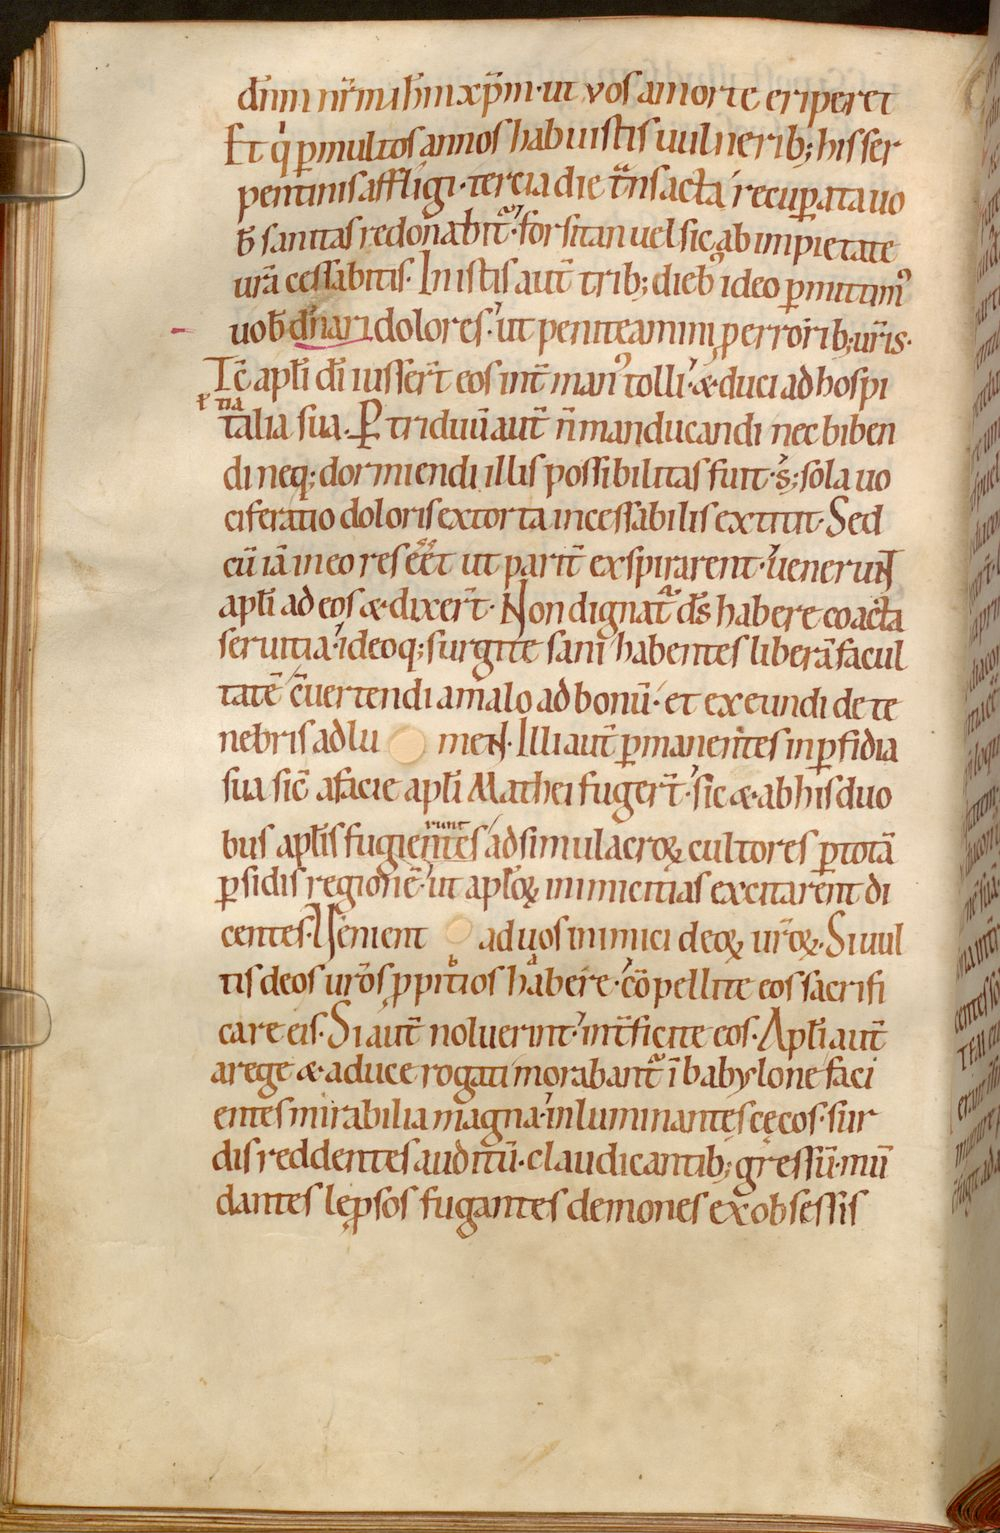 dn̄m nr̄m ih̄m xp̄m· ut vos a morte eriperet
Et q̍ p̱ multos annos habuistis uulnerib; his ser
pentinis affligi· tercia die tn̄sacta recup̱ata uo
b̄ sanitas redonabit᷑· forsitan vel sic ab impietate
urā cessabitis. In istis aut̄ trib; dieb᷒ ideo p̱mittim᷒
uob̄ dn̄ari dolores· ut peniteamini p erroribus; ur̄is·
Tc̄ apl̄i dī iusser̄t eos int̄ man᷒ tolli· & duci ad hospi
ł tia
talia sua. P̱ triduū aut̄ n̄ manducandi nec biben
di neq; dormiendi illis possibilitas fuit· s; sola uo
ciferatio doloris extorta incessabilis extitit· Sed
cū iā in eo res eēt ut parit̄ exspirarent· ueneruNt
apl̄i ad eos & dixer̄t· Non dignat᷑ ds̄ habere coacta
seruitia· ideoq; surgite sani habentes liberā facul
tatē c̄uertendi a malo ad bonū· et exeundi de te
nebris ad lu meN· Illi aut̄ p̱manentes in p̱fidia
sua sic̄ a facie apl̄i Mathei fuger̄t· sic & ab his duo
runt
bus apl̄is fugientes ad simulacroꝝ cultores p̱ totā
p̱sidis regionē· ut apl̄oꝝ inimicitias excitarent di
centes· Uenient ad uos inimici deoꝝ ur̄oꝝ· Si uul
tis deos ur̄os ꝓpitios habere· cōpellite eos sacrifi
care eis· Si aut̄ noluerint· int̄ficite eos· Apl̄i aut̄
a rege & a duce rogati morabant᷑ ī babylone faci
entes mirabilia magna· inluminantes cęcos· sur
dis reddentes auditū· claudicantib; gressū· mū
dantes lep̱sos fugantes demones ex obsessis